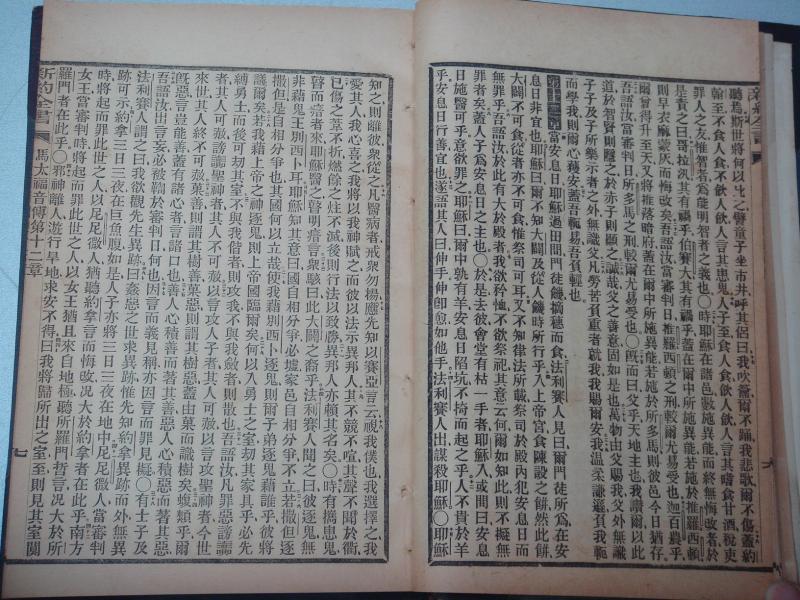 新約全書
聽焉斯世將何以比之譬童子坐市井呼其侶曰我吹籥爾不踊我悲歌爾不傷蓋約
翰至不食人食不飲人飲人言其患鬼人子至食人食飲人飲人言其嗜食甘酒稅吏
罪人之友惟智者爲能明智者之義也○時耶穌在諸邑數施異能而終無悔改者於
是責之曰哥拉汛其有禍乎伯賽大其有禍乎蓋在爾中所施異能若施於推羅西頓
則早衣麻蒙灰而悔改矣吾語汝當審判日推羅西頓之刑較爾尤易受也迦百農乎
爾曾得升至天又將推落暗府蓋在爾中所施異能若施於所多馬則彼邑今日猶存
吾語汝當審判日所多馬之刑較爾尤易受也○旣而曰父乎天地主也我讚爾以此
道於智賢則隱之於赤子則顯之誠哉父之善意固如是也萬物由父賜我父外無識
子子及子所樂示者之外無識父凡勞苦負重者就我我賜爾安我溫柔謙遜負我軛
而學我則爾心獲安蓋吾軛易吾負輕也
第十二章當安息日耶穌過田間門徒饑摘穗而食法利賽人見曰爾門徒所爲在安
息日非宜也耶穌曰爾不知大闢及從人饑時所行乎入上帝宮食陳設之餅然此餅
大闢不可食從者亦不可食惟祭司可耳又不知律法所載祭司於殿內犯安息日而
無罪乎吾語汝於此有大於殿者我欲矜恤不欲祭祀其意云何爾如知此則不擬無
罪者矣蓋人子爲安息日之主也○於是去彼會堂有枯一手者耶穌入或問曰安息
日施醫可乎意欲罪之耶穌曰爾中孰有羊安息日陷坑不掎而起之乎人不貴於羊
乎安息日行善宜也遂語其人曰伸手伸卽愈如他手法利賽人出謀殺耶穌○耶穌
知之則離彼衆從之凡醫病者戒衆勿揚應先知以賽亞言云視我僕也我選擇之我
愛其人我心悅之我將以我神賦之而彼以法示異邦人其不競不喧其聲不聞於衢
已傷之葦不折燃餘之炷不滅後則行法以致勝異邦人亦賴其名矣○時有攜患鬼
瞽而瘖者來耶穌醫之瞽明瘖言衆駭曰此大闢之裔乎法利賽人聞之曰彼逐鬼無
非藉鬼王別西卜耳耶穌知其意曰國自相分爭必墟家邑自相分爭不立若撒但逐
撒但是自相分爭也其國何以立哉使我藉別西卜逐鬼則爾子弟逐鬼藉誰乎彼將
議爾矣若我藉上帝之神逐鬼則上帝國臨爾矣何以入勇士之室刧其家具乎必先
縛勇士而後可刧其室不與我偕者則攻我不與我斂者則散也吾語汝凡罪惡謗讟
來世其人終不可赦褻瀆聖神者其人不可赦以言攻人子者其人可赦以言攻聖神者今世
旣惡言豈能善蓋有諸心者言諸口也善人心積善而著其善惡人心積惡而著其惡
吾語汝出言妄必被鞫於審判日何也因言而義見稱亦因言而罪見擬○有士子及
法利賽人謂之曰我欲觀先生異跡曰姦惡之世求異跡惟先知約拿異跡而外無異
跡可示約拿三日三夜在巨魚腹如是人子亦將三日三夜在地中尼尼微人當審判
時將起而罪此世之人以尼尼微人猶聽約拿言而悔改況大於約拿者在此乎南方
女王當審判時將起而罪此世之人以女王猶且來自地極聽所羅門哲言況大於所
羅門者在此乎○邪神離人遊行旱地求安不得曰我將歸所出之室至則見其室閴
新約全書
馬太福音傳第十二章
七